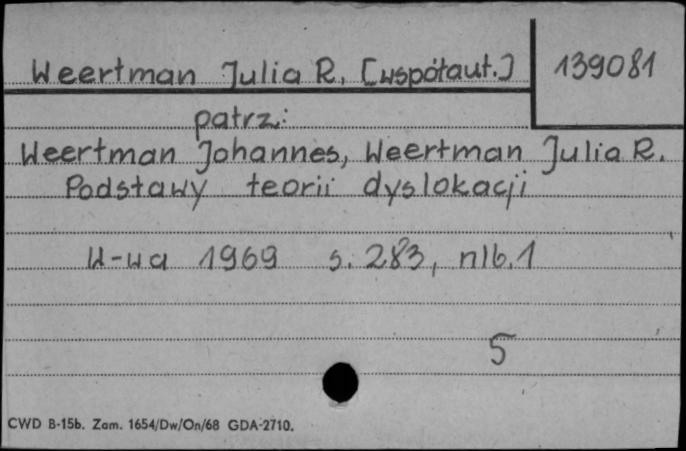 Weertman Julia R. [współaut.] 139081
patrz:
Weertman Johannes, Weertman Julia R.
Podstawy teorii dyslokacji
W-wa 1969 s. 283, nlb. 1
5
CWD B-15b. Zam. 1654/Dw/On/68 GDA-2710.